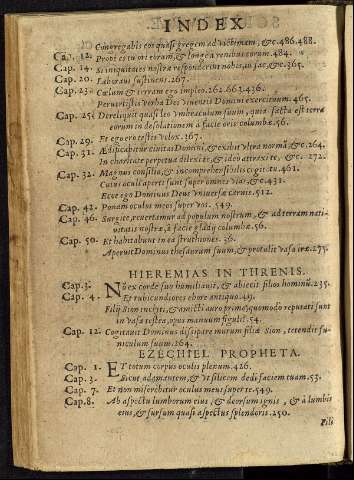 INDEX
Congregabis eos quasi gregem ad victimam, &c. 486.488.
Cap. 12. Prope es tu ori eorum, & longe a renibus eorum. 484.
Cap. 14. Si iniquitates nostræ responderint nobis, iu fac, &c. 365.
Cap. 20. Laboraui sustinens. 267.
Cap. 23. Cœlum & terram ego impleo. 262.663.436.
Peruertistis verba Dei viuentis Domini exercituum. 465.
Cap. 25. Dereliquit quasi leo vmbraculum suum, quia facta est terra
eorum in desolationem à facie iræ columbæ. 56.
Cap. 29. Et ego ero testis velox. 367.
Cap. 31. Ædificabitur ciuitas Domini, & exibit vltra normã, &c. 264.
In charitate perpetua dilexi te, & ideo attraxi te, &c. 272.
Cap. 32. Magnus consilio, & incomprehensibilis cogitatu. 461.
Cuius oculi aperti sunt super omnes vias, &c. 431.
Ecce ego Dominus Deus vniuersæ carnis. 512.
Cap. 42. Ponam oculos meos super vos. 549.
Cap. 46. Surgite, reuertamur ad populum nostrum, & ad terram nati-
uitatis nostræ, à facie gladij columbæ. 56.
Cap. 50. Et habitabunt in ea struthiones. 36.
Aperuit Dominus thesaurum suum, & protulit vasa iræ. 275.
HIEREMIAS IN THRENIS.
Cap. 3. Non ex corde suo humiliauit, & abiecit filios hominũ. 235.
Cap. 4. Et rubicundiores ebore antiquo. 49.
Filij Sion inclyti, & amicti auro primo, quomodò reputati sunt
in vasa testea, opus manuum figuli? 54.
Cap. 12. Cogitauit Dominus dissipare murum filiæ Sion, tetendit fu-
niculum suum. 264.
EZECHIEL PROPHETA.
Cap. 1. ET totum corpus oculis plenum. 426.
Cap. 3. Sicut adamantem, & vt silicem dedi faciem tuam. 53.
Cap. 7. Et non miserebitur oculus meus super te. 549.
Cap. 8. Ab aspectu lumborum eius, & deorsum ignis, & à lumbis
eius, & sursum quasi aspectus splendoris. 250.
Fili